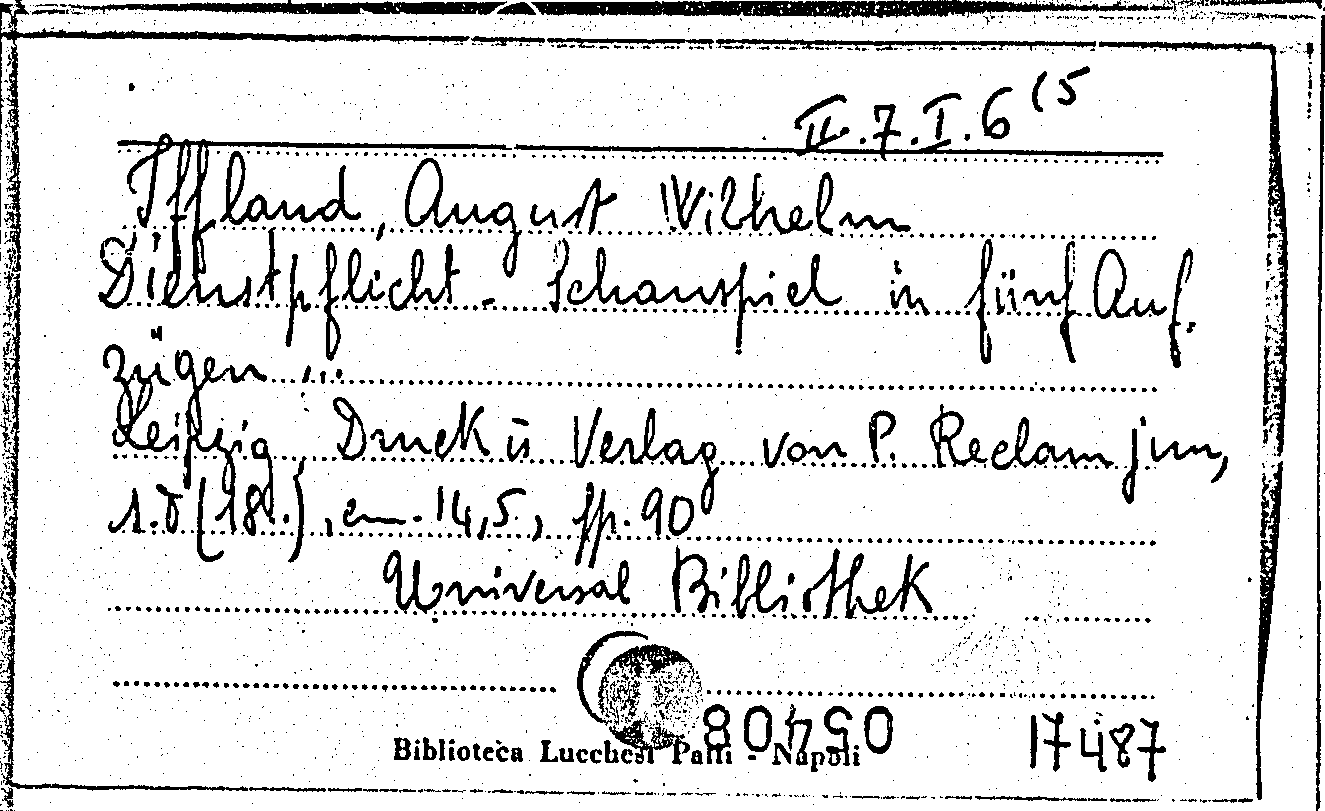 II.7.I.6(5
Iffland, August Wilhelm
Dienstpflicht - Schauspiel in fünf Auf-
zügen ...
Leipzig, Druck ü Verlag von P. Reclam jun,
s.d (18..), cm. 14,5, pp. 90
Universal Bibliothek
05408
17487
Biblioteca Lucchesi Palli - Napoli